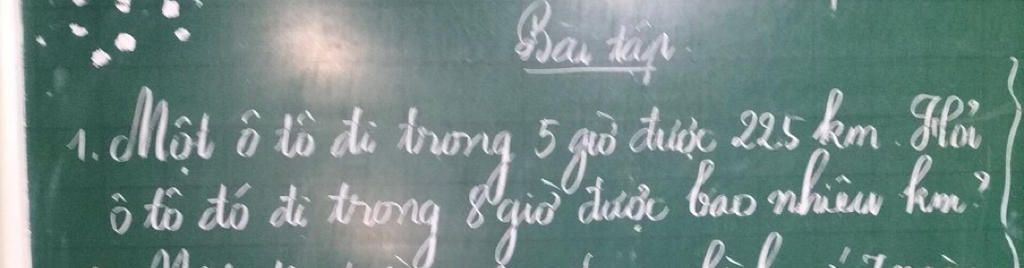 Bài tập
1. Một ô tô đi trong 5 giờ được 225 km. Hỏi
ô tô đó đi trong 8 giờ được bao nhiêu km?